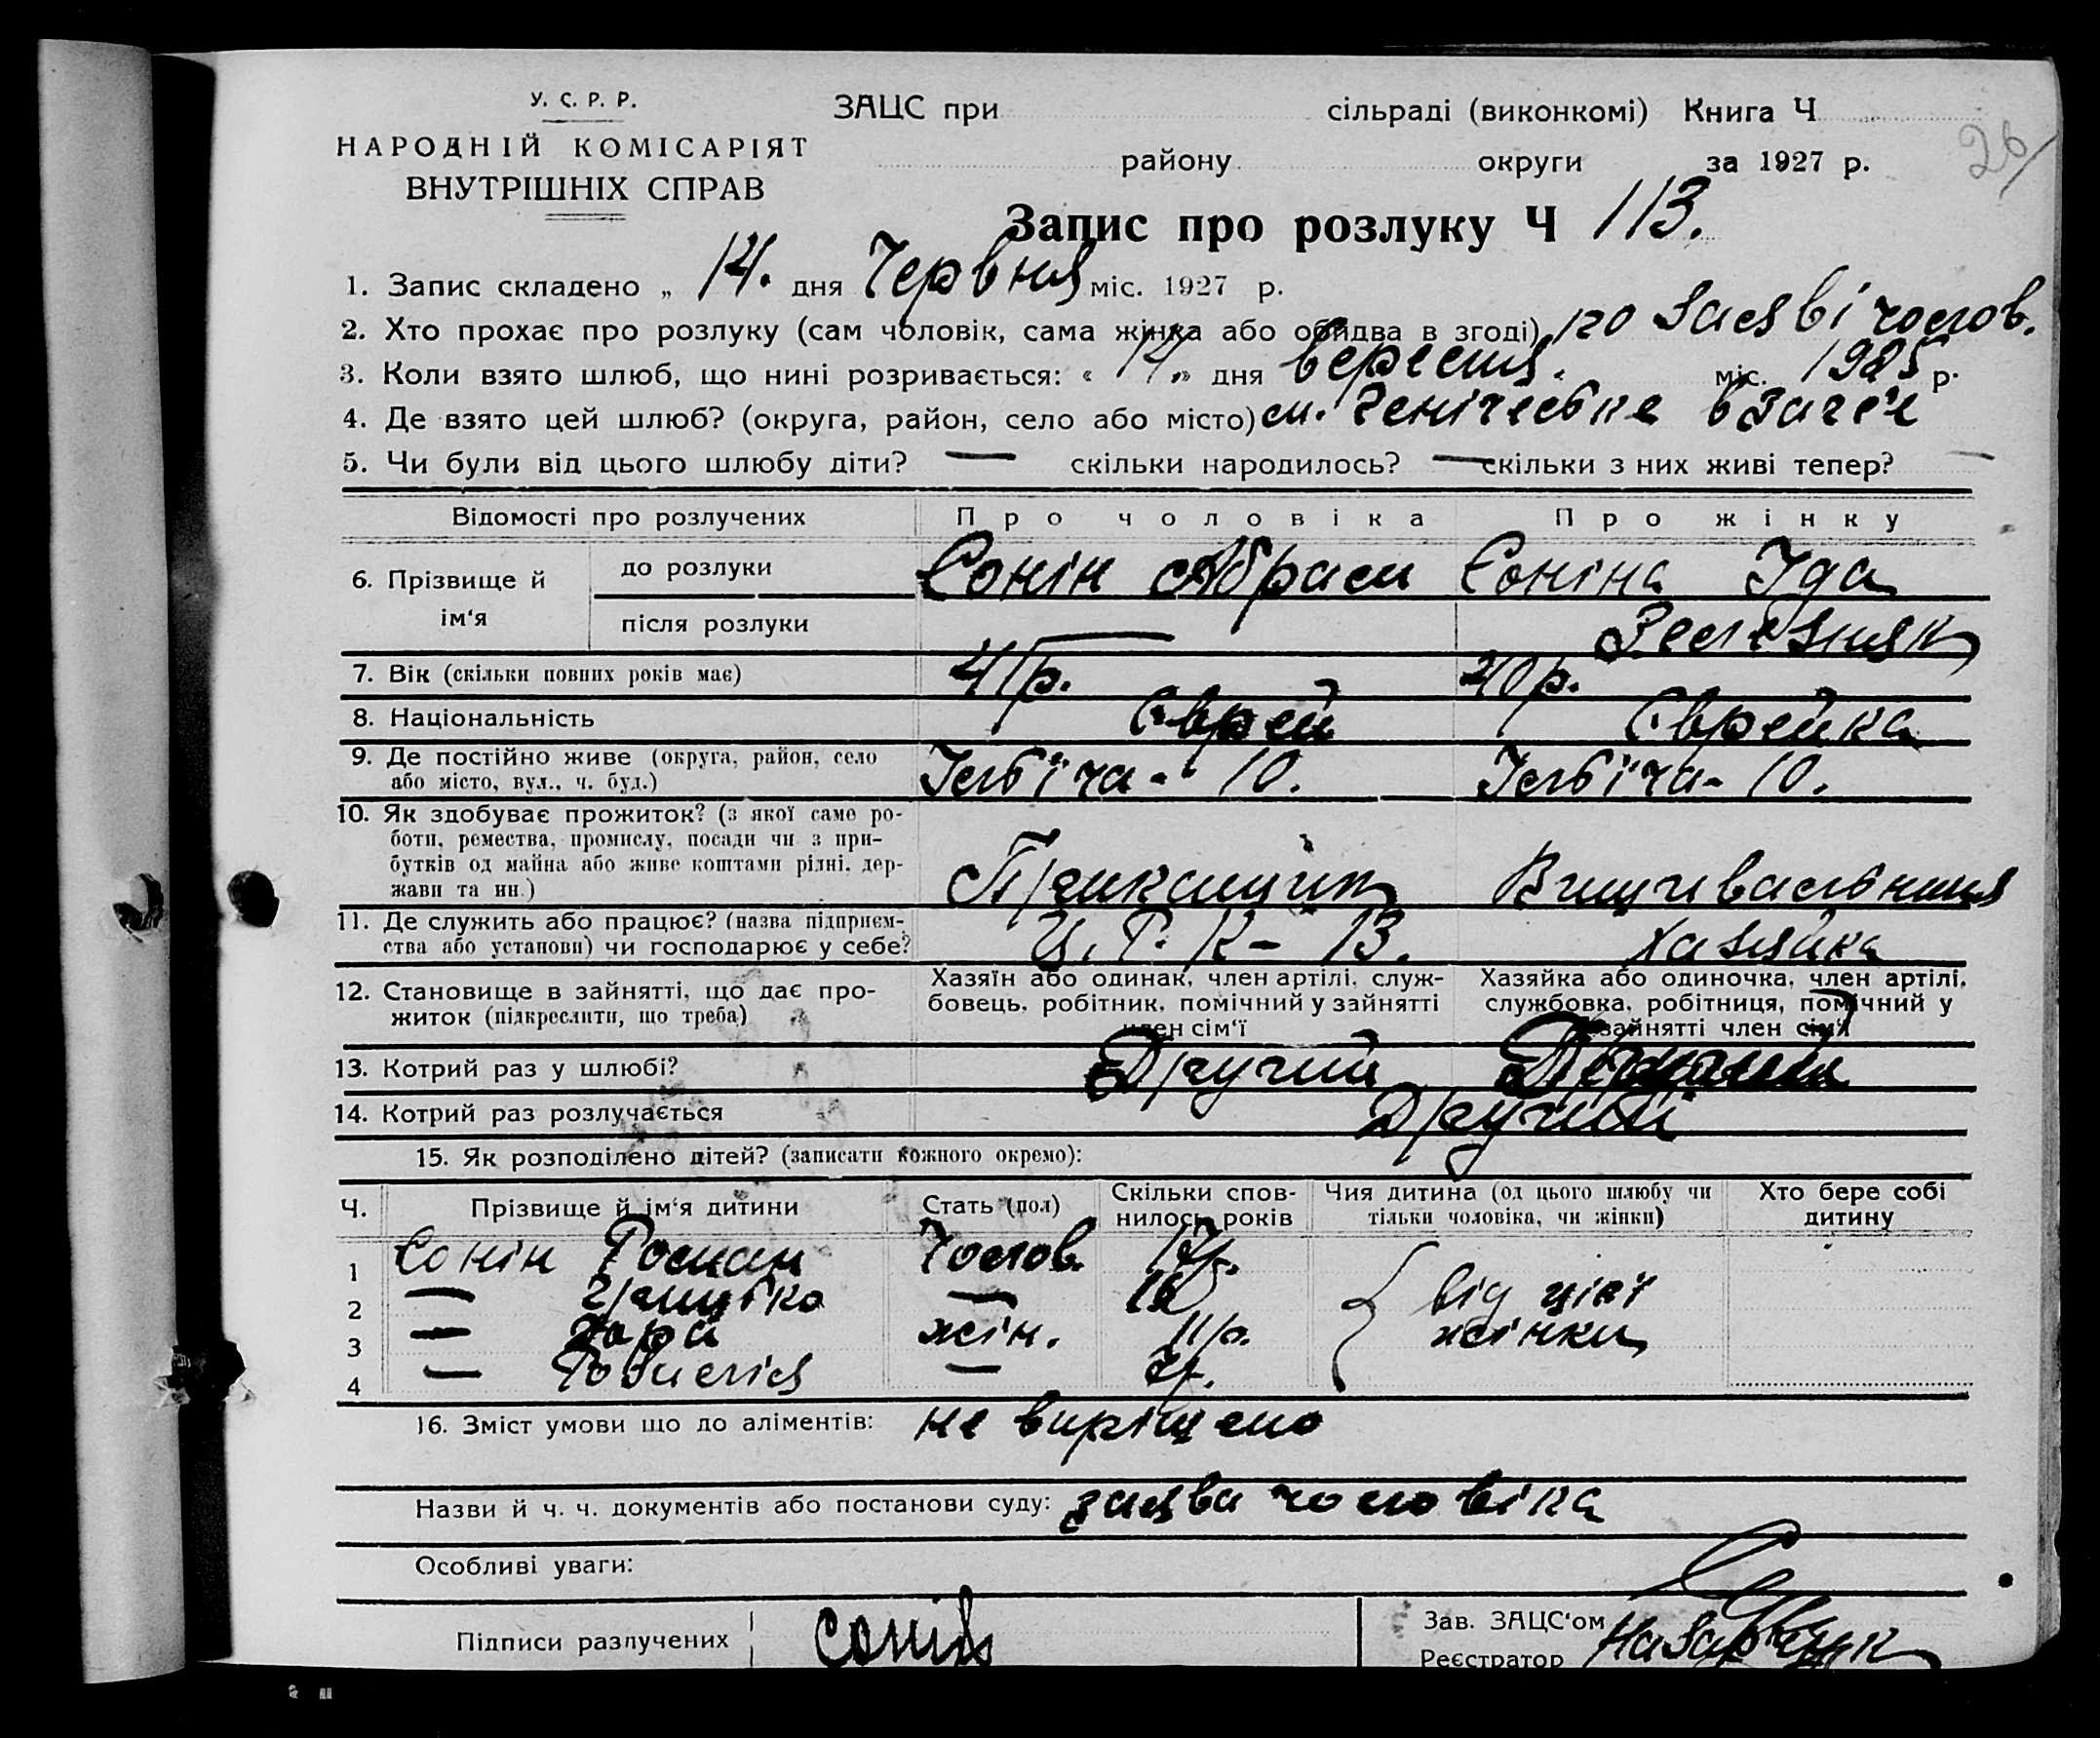 У. С. Р. Р.
НАРОДНІЙ КОМІСАРІЯТ
ВНУТРІШНІХ СПРАВ
ЗАЦС при сільраді (виконкомі) Книга Ч
району округи за 1927 р.
26
Запис про розлуку Ч 113.
1. Запис складено „ 14. дня Червня міс. 1927 р.
2. Хто прохає про розлуку (сам чоловік, сама жінка або обидва в згоді) по заяві чолов.
3. Коли взято шлюб, що нині розривається: « 14 » дня вересня. міс. 1925 р.
4. Де взято цей шлюб? (округа, район, село або місто) м. Генічеське в Загсі
5. Чи були від цього шлюбу діти? — скільки народилось? — скільки з них живі тепер? —
Відомості про розлучених Про чоловіка Про жінку
6. Прізвище й ім‘я до розлуки Сонін Абрам Соніна Іда
після розлуки — Зелезняк
7. Вік (скільки повних років має) 41 р. 40 р.
8. Національність Єврей Єврейка
9. Де постійно живе (округа, район, село
або місто, вул., ч. буд.) Ільвіча - 10. Ільвіча - 10.
10. Як здобуває прожиток? (з якої саме ро-
боти, ремества, промислу, посади чи з при-
бутків од майна або живе коштами рідні, дер-
жави та ин.) Прикащик
11. Де служить або працює? (назва підприєм-
ства або установи) чи господарює у себе? Ц. Р. К - 13. хазяйка
12. Становище в зайнятті, що дає про-
житок (підкреслити, що треба)
Хазяїн або одинак, член артілі, служ-
бовець, робітник, помічний у зайнятті
член сім‘ї
Хазяйка або одиночка, член артілі,
службовка, робітниця, помічний у
зайнятті член сім‘ї
13. Котрий раз у шлюбі? Другий
14. Котрий раз розлучається Другий
15. Як розподілено дітей? (записати кожного окремо):
Ч. Прізвище й ім‘я дитини Стать (пол) Скільки спов-
нилось років Чия дитина (од цього шлюбу чи
тільки чоловіка, чи жінки) Хто бере собі
дитину
1 Сонін Роман Чолов.
2 — Гришка — від цієї
3 — Сара жін. 11 р. жінки
4 — Розалія —
16. Зміст умови що до аліментів: не вирішено
Назви й ч. ч. документів або постанови суду: заява чоловіка
Особливі уваги:
Підписи разлучених Сонін
Зав. ЗАЦС‘ом
Реєстратор Назарчук